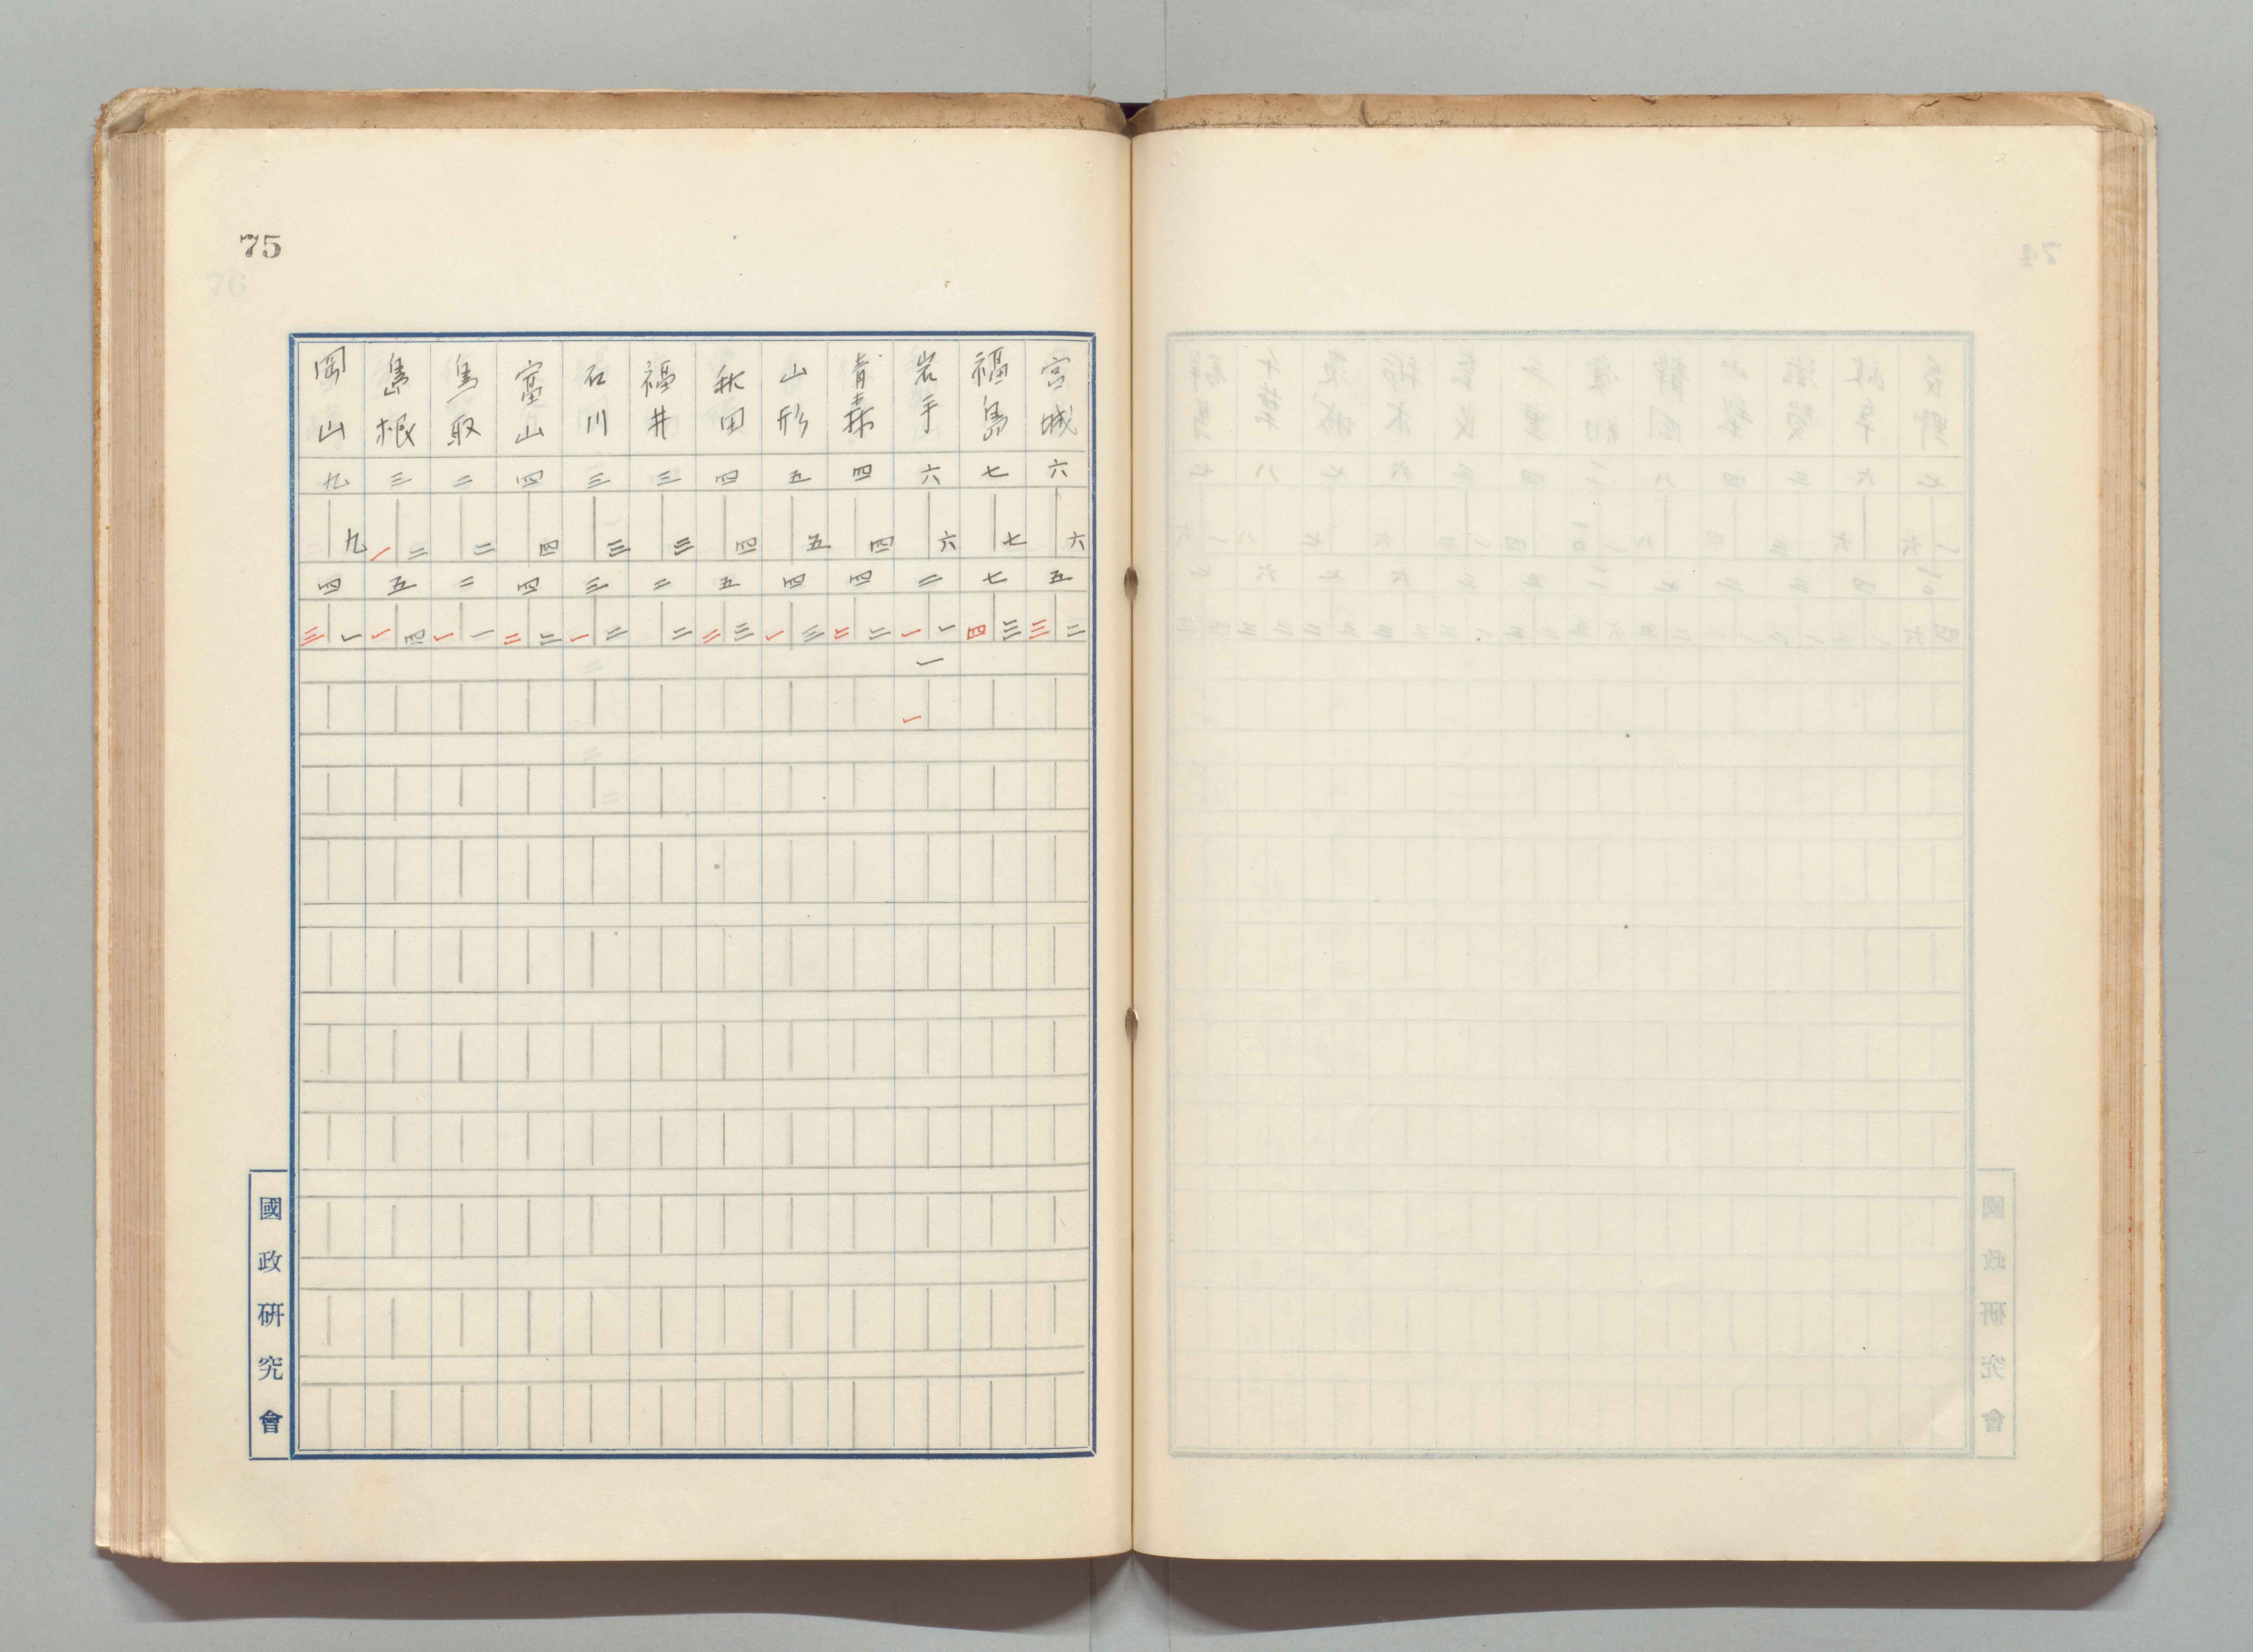 75
宮城 六 六 五 二 三
福島 七 七 七 三 四
岩手 六 六 二 一 一 一 一
青森 四 四 四 二 二
山形 五 五 四 三 一
秋田 四 四 五 三 二
福井 三 三 二 二
石川 三 三 三 二 一
富山 四 四 四 二 二
鳥取 二 二 二 一 一
島根 三 二 一 五 四 一
岡山 九 九 四 一 三
國政研究會